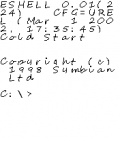 ESHELL 0.01(2
24)   CFG=URE
L (Mar  1 200
2, 17:35:45)
Cold Start


Copyright (c)
 1998 Symbian
 Ltd

C:\>